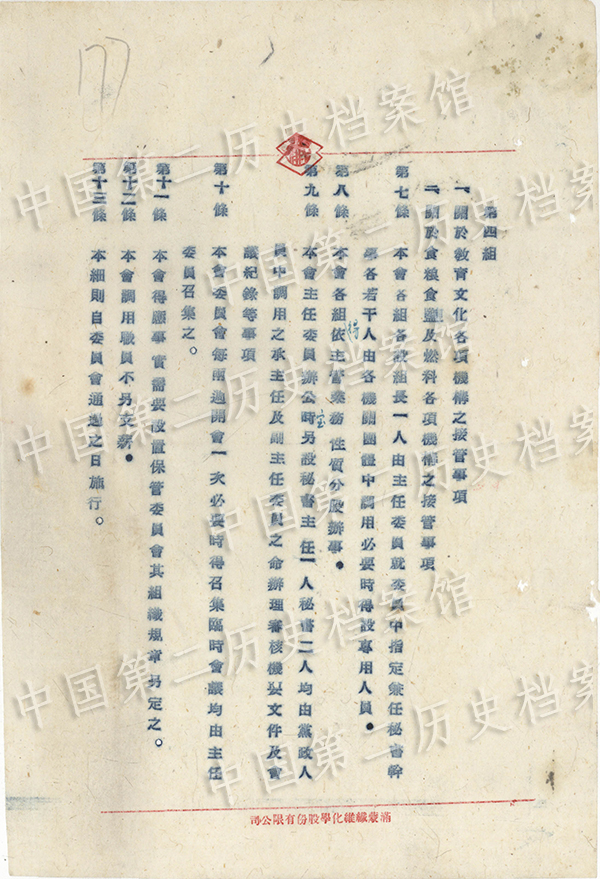 第四組
一、關於教育文化各項機構之接管事項
二、關於食粮食鹽及燃料各項機構之接管事項
第七條 本會各組各設組長一人由主任委員就委員中指定兼任秘書幹
各若干人由各機關團體中調用必要時得設專用人員。
第八條 本會各組依主管業務性質分股辦事。
第九條 本會主任委員辦公時另設秘書室主任一人秘書二人均由黨政人
員中調用之承主任及副主任委員之命辦理審核機要文件及會
議紀錄等事項
第十條 本會委員會每兩週開會一次必要時得召集臨時會議均由主任
委員召集之。
第十一條 本會得應事實需要設置保管委員會其組織規章另定之。
第十二條 本會調用職員不另支薪。
第十三條 本細則自委員會通過之日施行。
滿蒙纖維化學股份有限公司
中国第二历史档案馆
中国第二历史档案馆
中国第二历史档案馆
中国第二历史档案馆
中国第二历史档案馆
中国第二历史档案馆